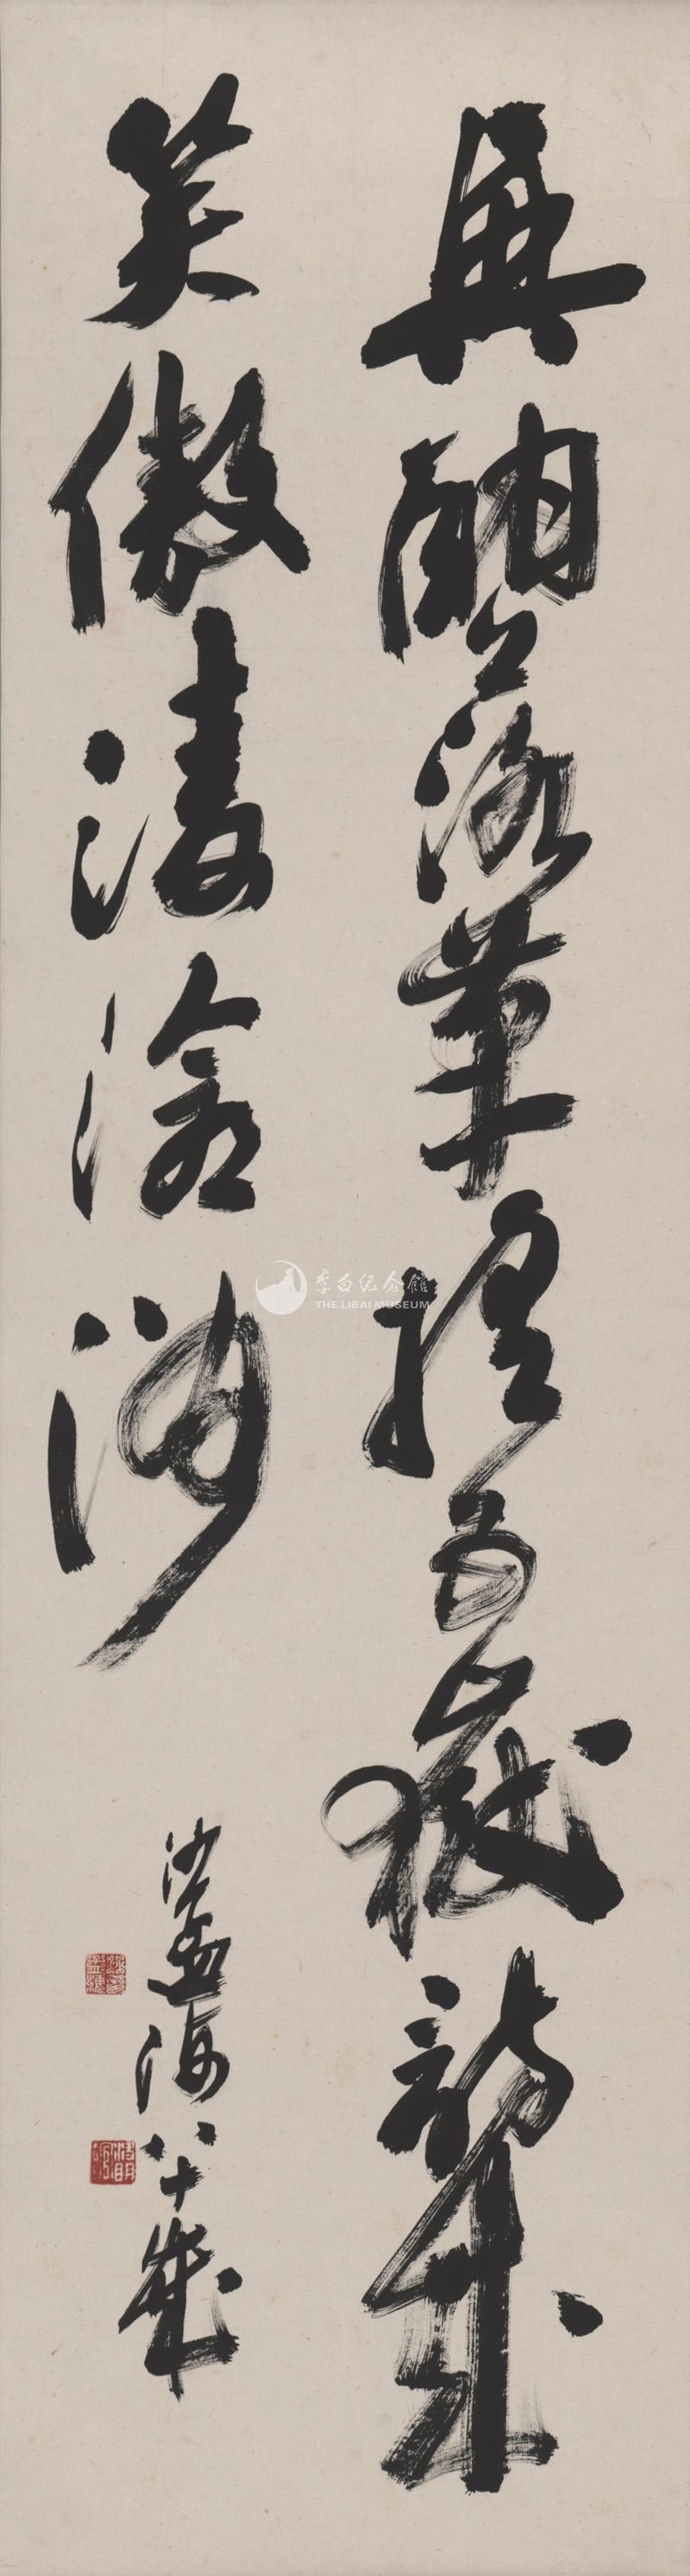 興酣落筆摇五嶽詩成
笑傲凌滄洲
沙孟海八十歲
李白纪念馆
THE LIBAI MUSEUM